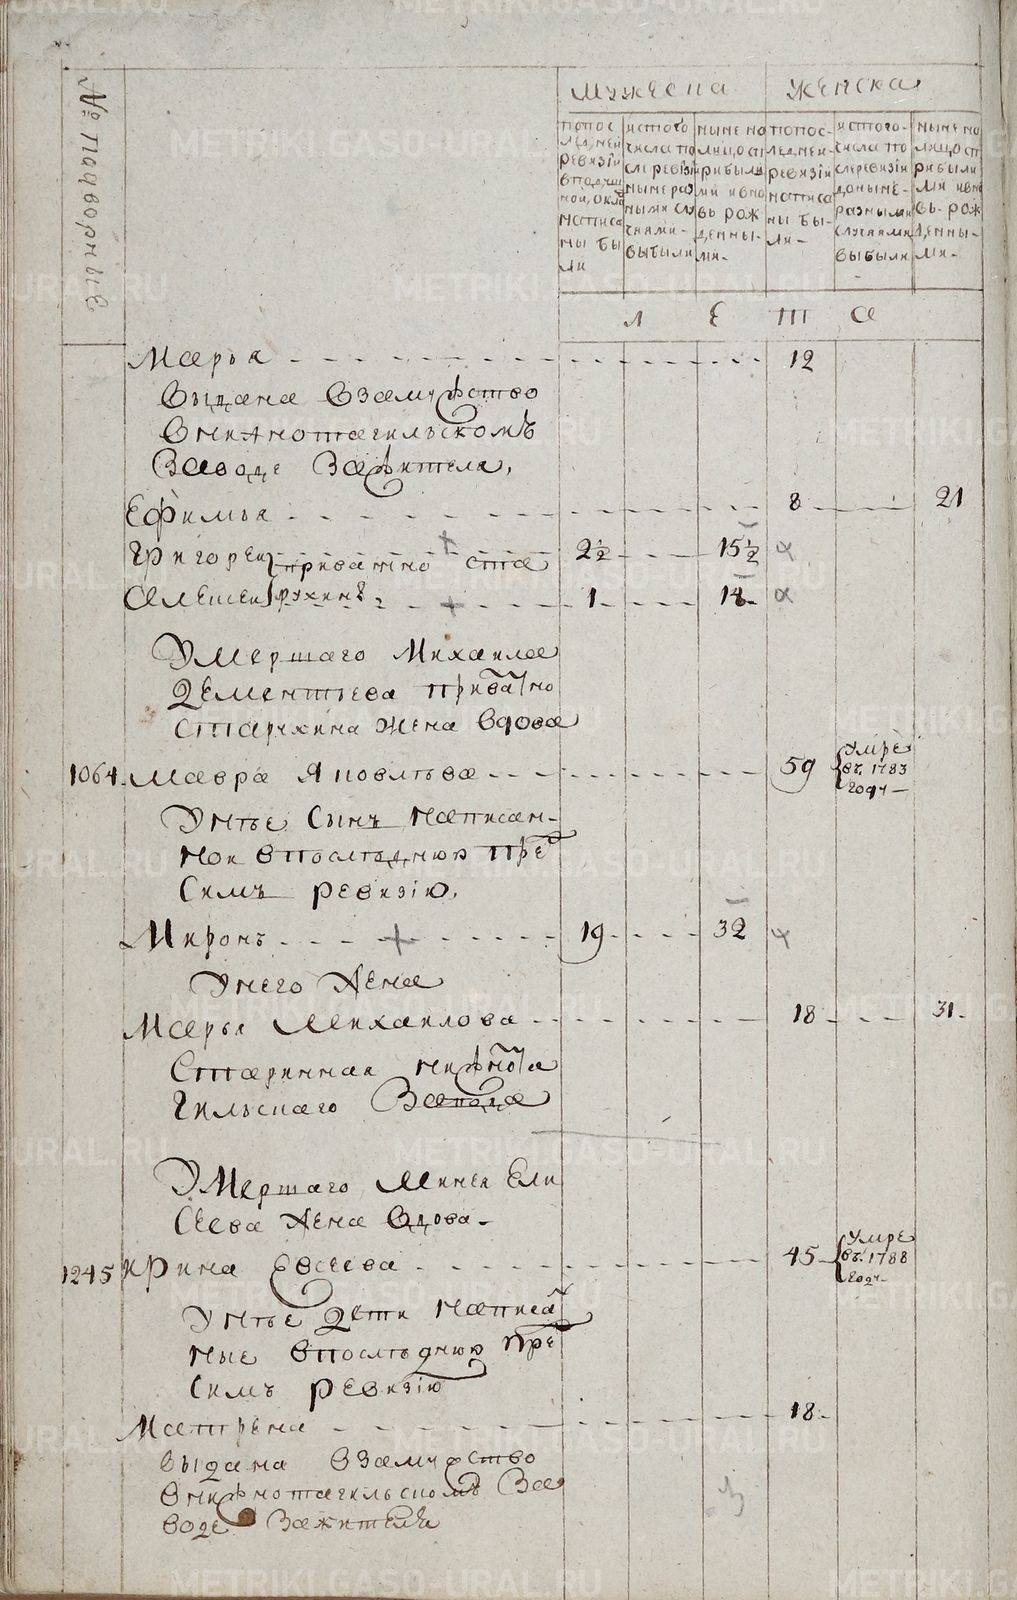 № подворные
мужеска женска
попос
ледней
ревизiи
вподуш
ной окла
написа
ны бы
ли
истого
числа по
сле ревизiи
ныне раз
ными слу
чаями
выбыли
ныне на
лицо сп
рибылы
ми ивно
вь рож
денны-
ми-
попос-
леднеи-
ревизiи
написа
ны бы-
ли-
истого-
числа по
слеревизiи
доныне-
разными
случаями
выбыли
ныне на
лицо сп
рибылы
ми ивно
вь- рож
денны-
ми-
л е т а
Марья 12
выдана взамужство
внижнотагильскомъ
Заводе Зажителя,
Ефимья 8 21
Григореи приватно ста 2½ 15½
Алексеи рухинъ 1 14
Умершаго Михаила
Дементьева приватно
Старухина жена вдова
1064 Мавра Яковлева 59 Умре
въ 1783
году
Унее Сынъ написан-
нои впоследнюю пре
Симъ ревизiю,
Миронъ 19 32
Унего Жена
Марья Михаилова 18 31
Старинная нижнота
гильскаго Завода
Умершаго Минеи Ели
Сеева Жена вдова-
1245 Ирина Евсеева 45 Умре
въ 1788
году
Унее Дети написа
ные впоследнюю пре
Симъ ревизiю
Матрена 18
выдана взамужство
внижнотагильскомъ За
воде Зажителя
METRIKI.GASO-URAL.RU